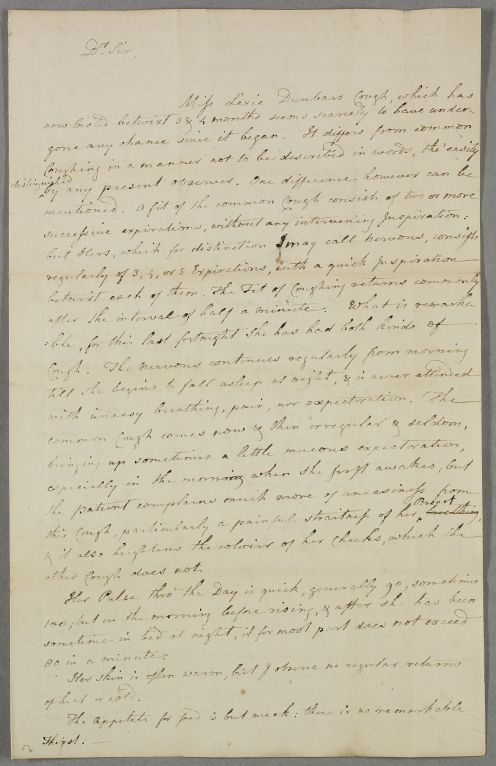 Dr Sir.
Miss Lexie Dunbars Cough, which has
now lasted betwixt 3 & 4 months seems scarcely to have under-
gone any change since it began. It differs from common
Coughing in a manner not to be described in words, tho' easily
distinguished by any present observer. One difference however can be
mentioned. A fit of the common Cough consists of two or more
successive expirations, without any intervening Inspiration:
but Hers, which for distinction I may call Nervous, consists
regularly of 3, 4, or 5 Expirations, with a quick Inspiration
betwixt each of them. The Fit of Coughing returns commonly
after the interval of half a minute. What is remark-
able, for this last fortnight she has had both kinds of
Cough. The nervous continues regularly from morning
till she begins to fall asleep at night, & is never attended
with uneasy breathing, pain, nor expectoration. The
common Cough comes now & then irregular & seldom,
bringing up sometimes a little mucous expectoration,
especially in the morning when she first awakes; but
the patient complains much more of uneasiness from
this Cough, particularly a painful straitness of her Breast
& it also heightens the colour of her Cheeks, which the
other Cough does not.
Her Pulse thro' the Day is quick, generally 90, sometimes
100; but in the morning before rising, & after she has been
sometime in bed at night, it for most part does not exceed
80 in a minute.
Her skin is often warm, but I observe no regular returns
of heat or cold.
The appetite for food is but weak: there is no remarkable
Thirst.